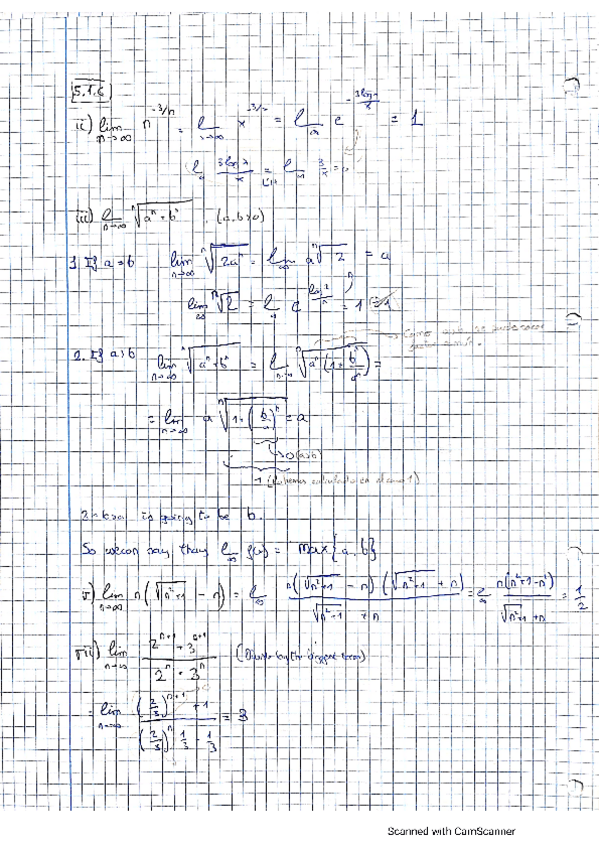 5.1.6
ii) lim n→∞ n^(-3/n) = l x→∞ x^(-3/x) = l ∞ e^(-3log x/x) = 1
l ∞ 3log x / x = L'H l ∞ 3/x = 0
iii) l n→∞ ⁿ√(aⁿ+bⁿ) , (a,b>0)
1. If a=b lim n→∞ ⁿ√(2aⁿ) = l ∞ a ⁿ√2 = a
lim ∞ ⁿ√2 = l ∞ e^(log 2/n) = 1
2. If a>b lim n→∞ ⁿ√(aⁿ+bⁿ) = l n→∞ ⁿ√(aⁿ(1+bⁿ/aⁿ)) =
= lim n→∞ a ⁿ√(1+(b/a)ⁿ) = a
→0 (a>b)
is going to be b.
So we can say that l ∞ f(x) = max{a,b}
v) lim n→∞ n(√(n²+1) - n) = l ∞ n(√(n²+1) - n)(√(n²+1) + n) / √(n²+1) + n = l ∞ n(n²+1-n²) / √(n²+1) + n = 1/2
vii) lim n→∞ 2ⁿ⁺¹+3ⁿ⁺¹ / 2ⁿ+3ⁿ (Divide by the biggest term)
= lim n→∞ (2/3)ⁿ⁺¹ + 1 / (2/3)ⁿ 1/3 + 1/3 = 3
Scanned with CamScanner